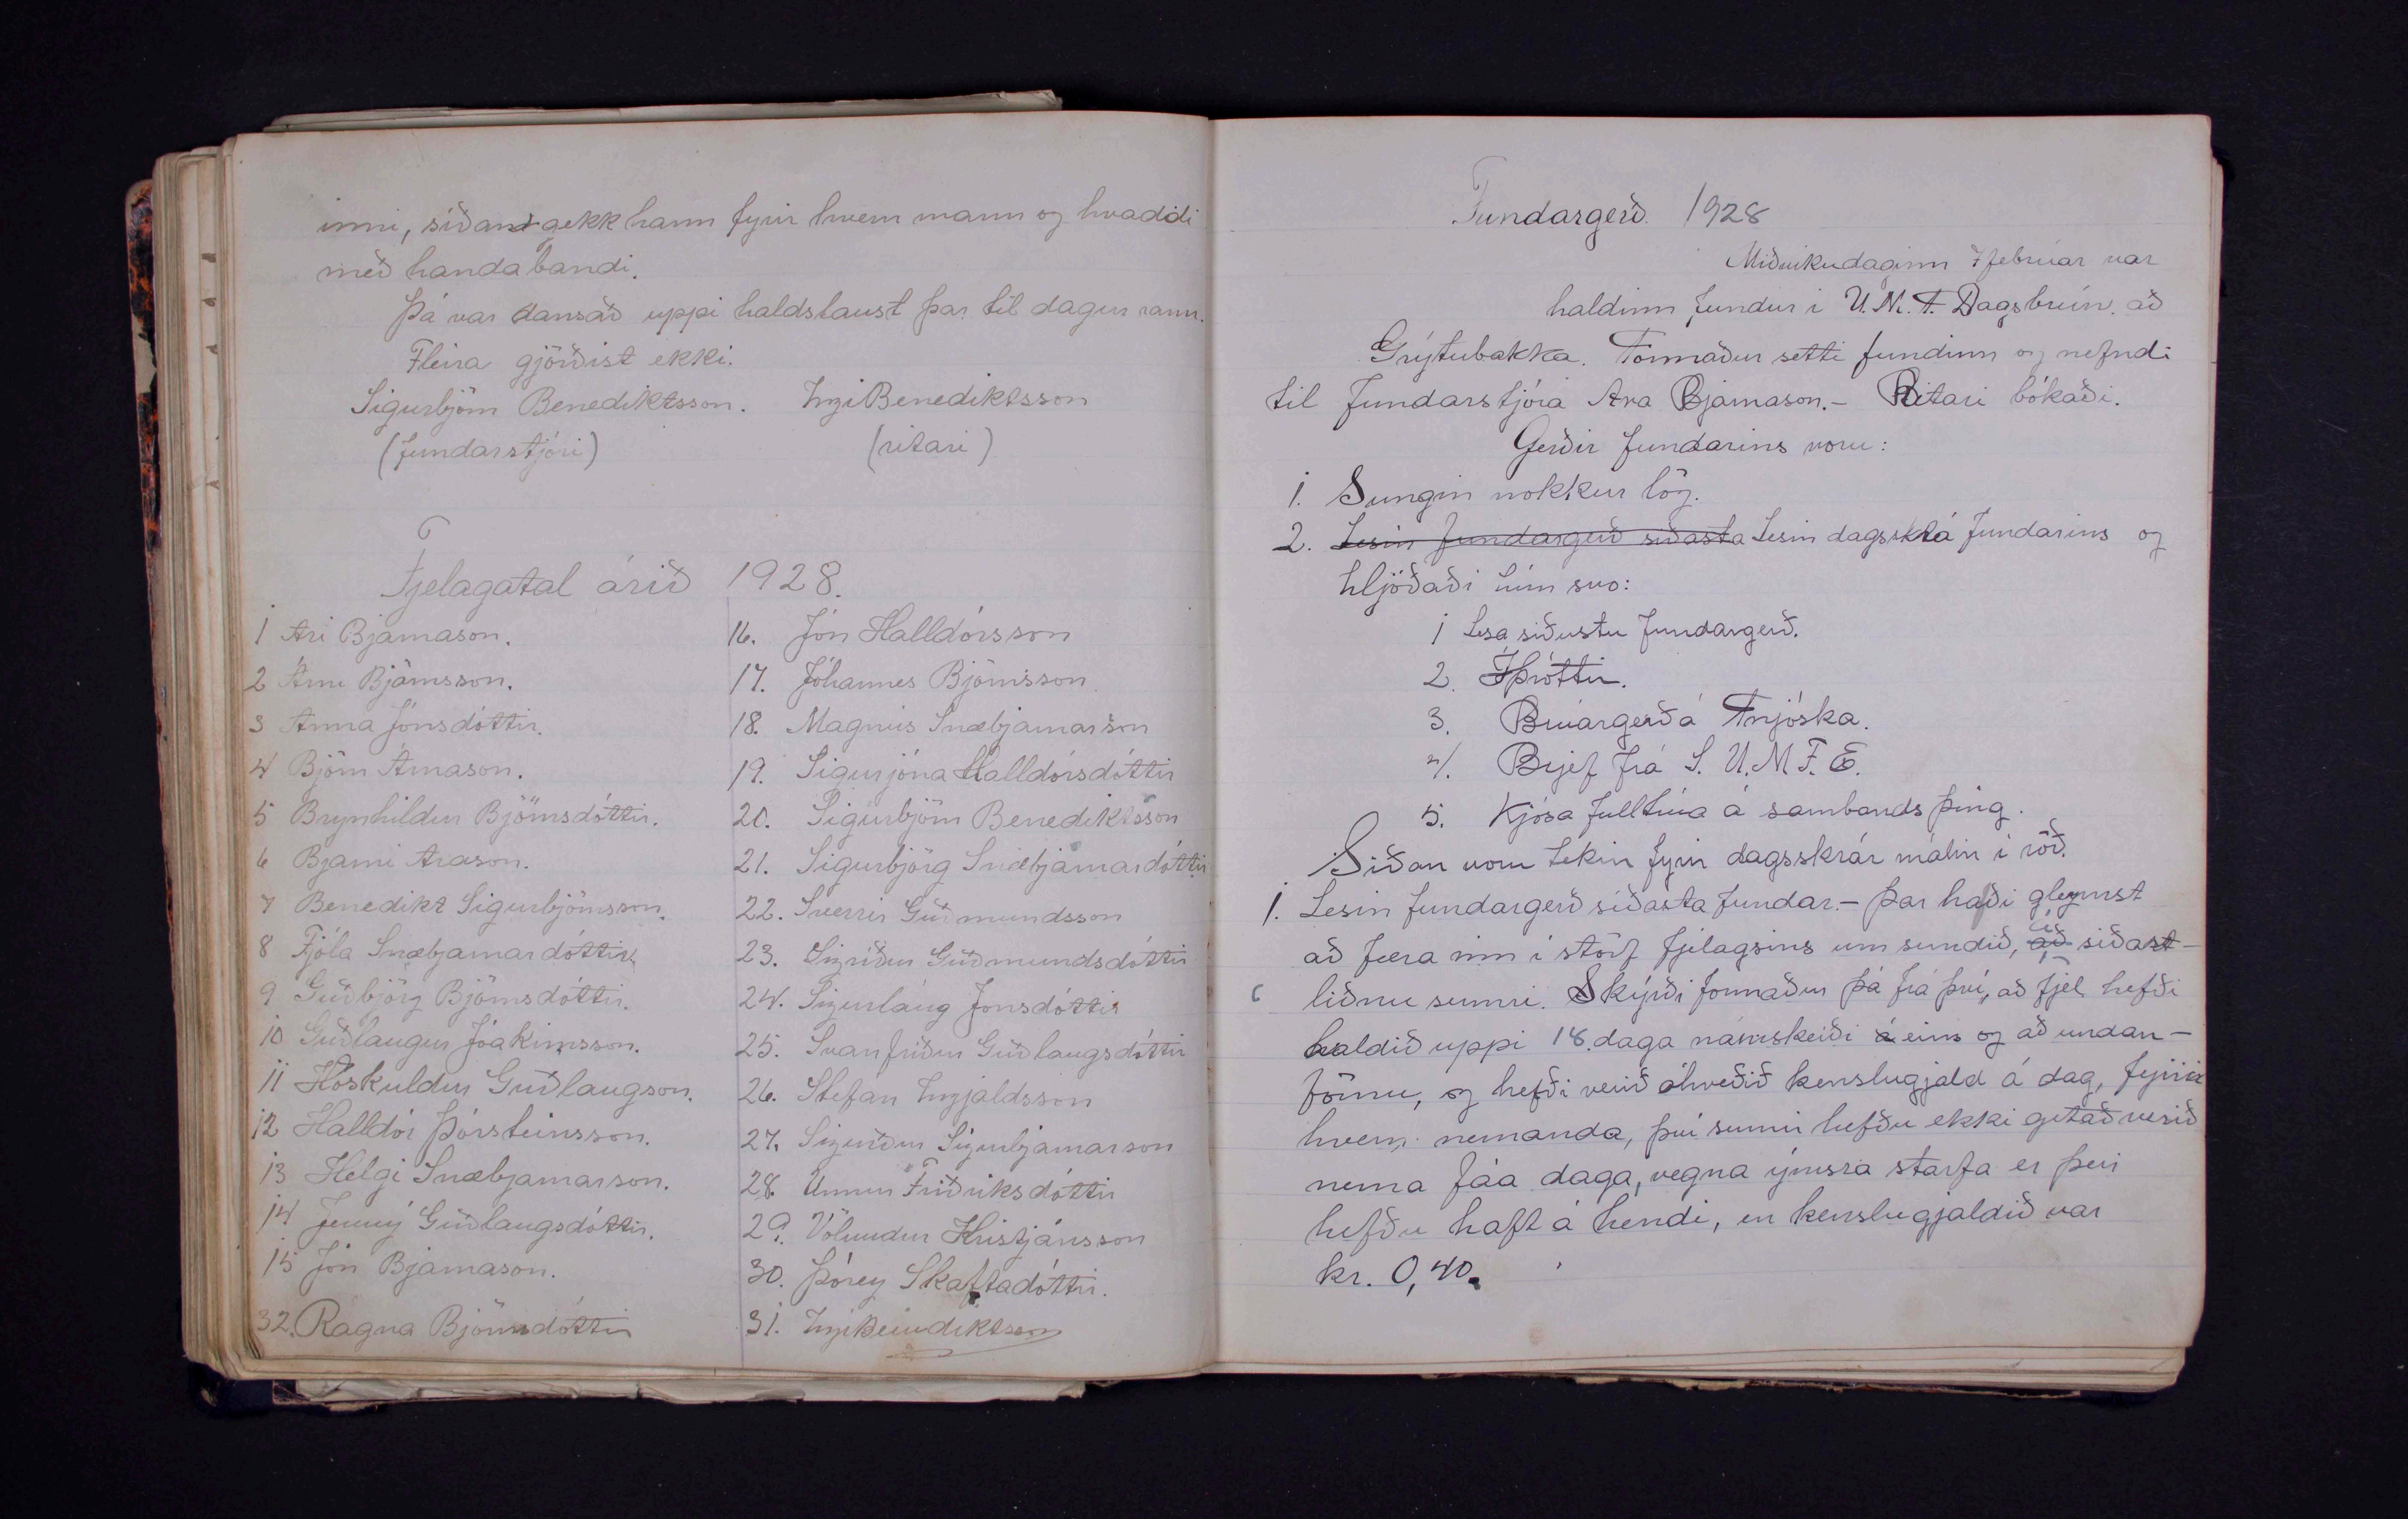 inni, síðan gekk hann fyrir hvern mann og hvaddi
með handabandi.
Þá var dansað uppi haldslaust þar til dagur rann.
Fleira gjörðist ekki.
Sigurbjörn Benediktsson. Ingi Benediktsson
(fundarstjóri) (ritari)
Fjelagatal árið 1928.
1 Ari Bjarnason.
2 Árni Björnsson.
3 Anna Jónsdóttir.
4 Björn Árnason.
5 Brynhildur Björnsdóttir.
6 Bjarni Arason.
7 Benedikt Sigurbjörnsson.
8 Fjóla Snæbjarnardóttir.
9 Guðbjörg Björnsdóttir.
10 Guðlaugur Jóakimsson.
11 Höskuldur Guðlaugson.
12 Halldór Þórsteinsson.
13 Helgi Snæbjarnarson.
14 Jenný Guðlaugsdóttir.
15 Jón Bjarnason.
32. Ragna Björnsdóttir
16. Jón Halldórsson
17. Jóhannes Björnsson
18. Magnús Snæbjarnarson
19. Sigurjóna Halldórsdóttir
20. Sigurbjörn Benediktsson
21. Sigurbjörg Snæbjarnardóttir
22. Sverrir Guðmundsson
23. Sigríður Guðmundsdóttir
24. Sigurlaug Jónsdóttir
25. Svanfríður Guðlaugsdóttir
26. Stefan Ingjaldsson
27. Sigurður Sigurbjarnarson
28. Unnur Friðriksdóttir
29. Völundur Kristjánsson
30. Þórey Skaftadóttir.
31. Ingi Benediktsson
Fundargerð. 1928
Miðvikudaginn 7 febrúar var
haldinn fundur i U.M.F. Dagsbrún. að
Grýtubakka. Formaður setti fundinn og nefndi
til fundarstjóra Ara Bjarnason. - Ritari bókaði.
Gerðir fundarins voru:
1. Sungin nokkur lög.
2. Lesin fundargerð síðasta Lesin dagsskrá fundarins og
hljóðaði hún svo:
1 Lesa síðustu fundargerð.
2. Íþróttir.
3. Brúargerð á Fnjóská.
4. Brjef frá S. U. M. F. E.
5. Kjósa fulltrúa á sambands þing.
Síðan voru tekin fyrir dagsskrár málin í röð.
1. Lesin fundargerð síðasta fundar. - Þar hafði gleymst
að færa inn í störf fjelagsins um sundið, að á síðast-
liðnu sumri. Skýrði formaður þá frá því, að fjel. hefði
haldið uppi 18. daga námskeiði á eins og að undan-
förnu, og hefði verið áhveðið kenslugjald á dag, fyrir
hvern nemanda, því sumir hefðu ekki getað verið
nema fáa daga, vegna ýmsra starfa er þeir
hefðu haft á hendi, en kenslugjaldið var
kr. 0,40.